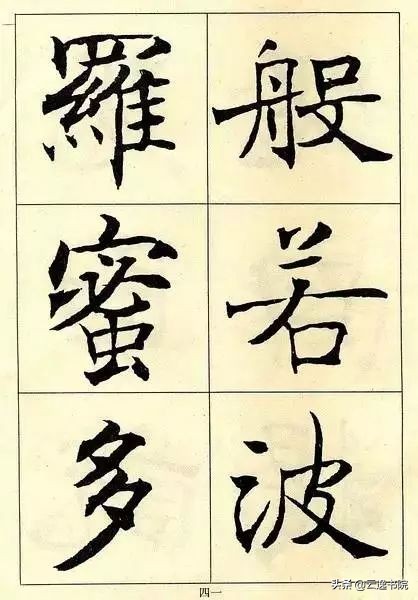 般若波
羅蜜多
四一
头条 @云逸书院